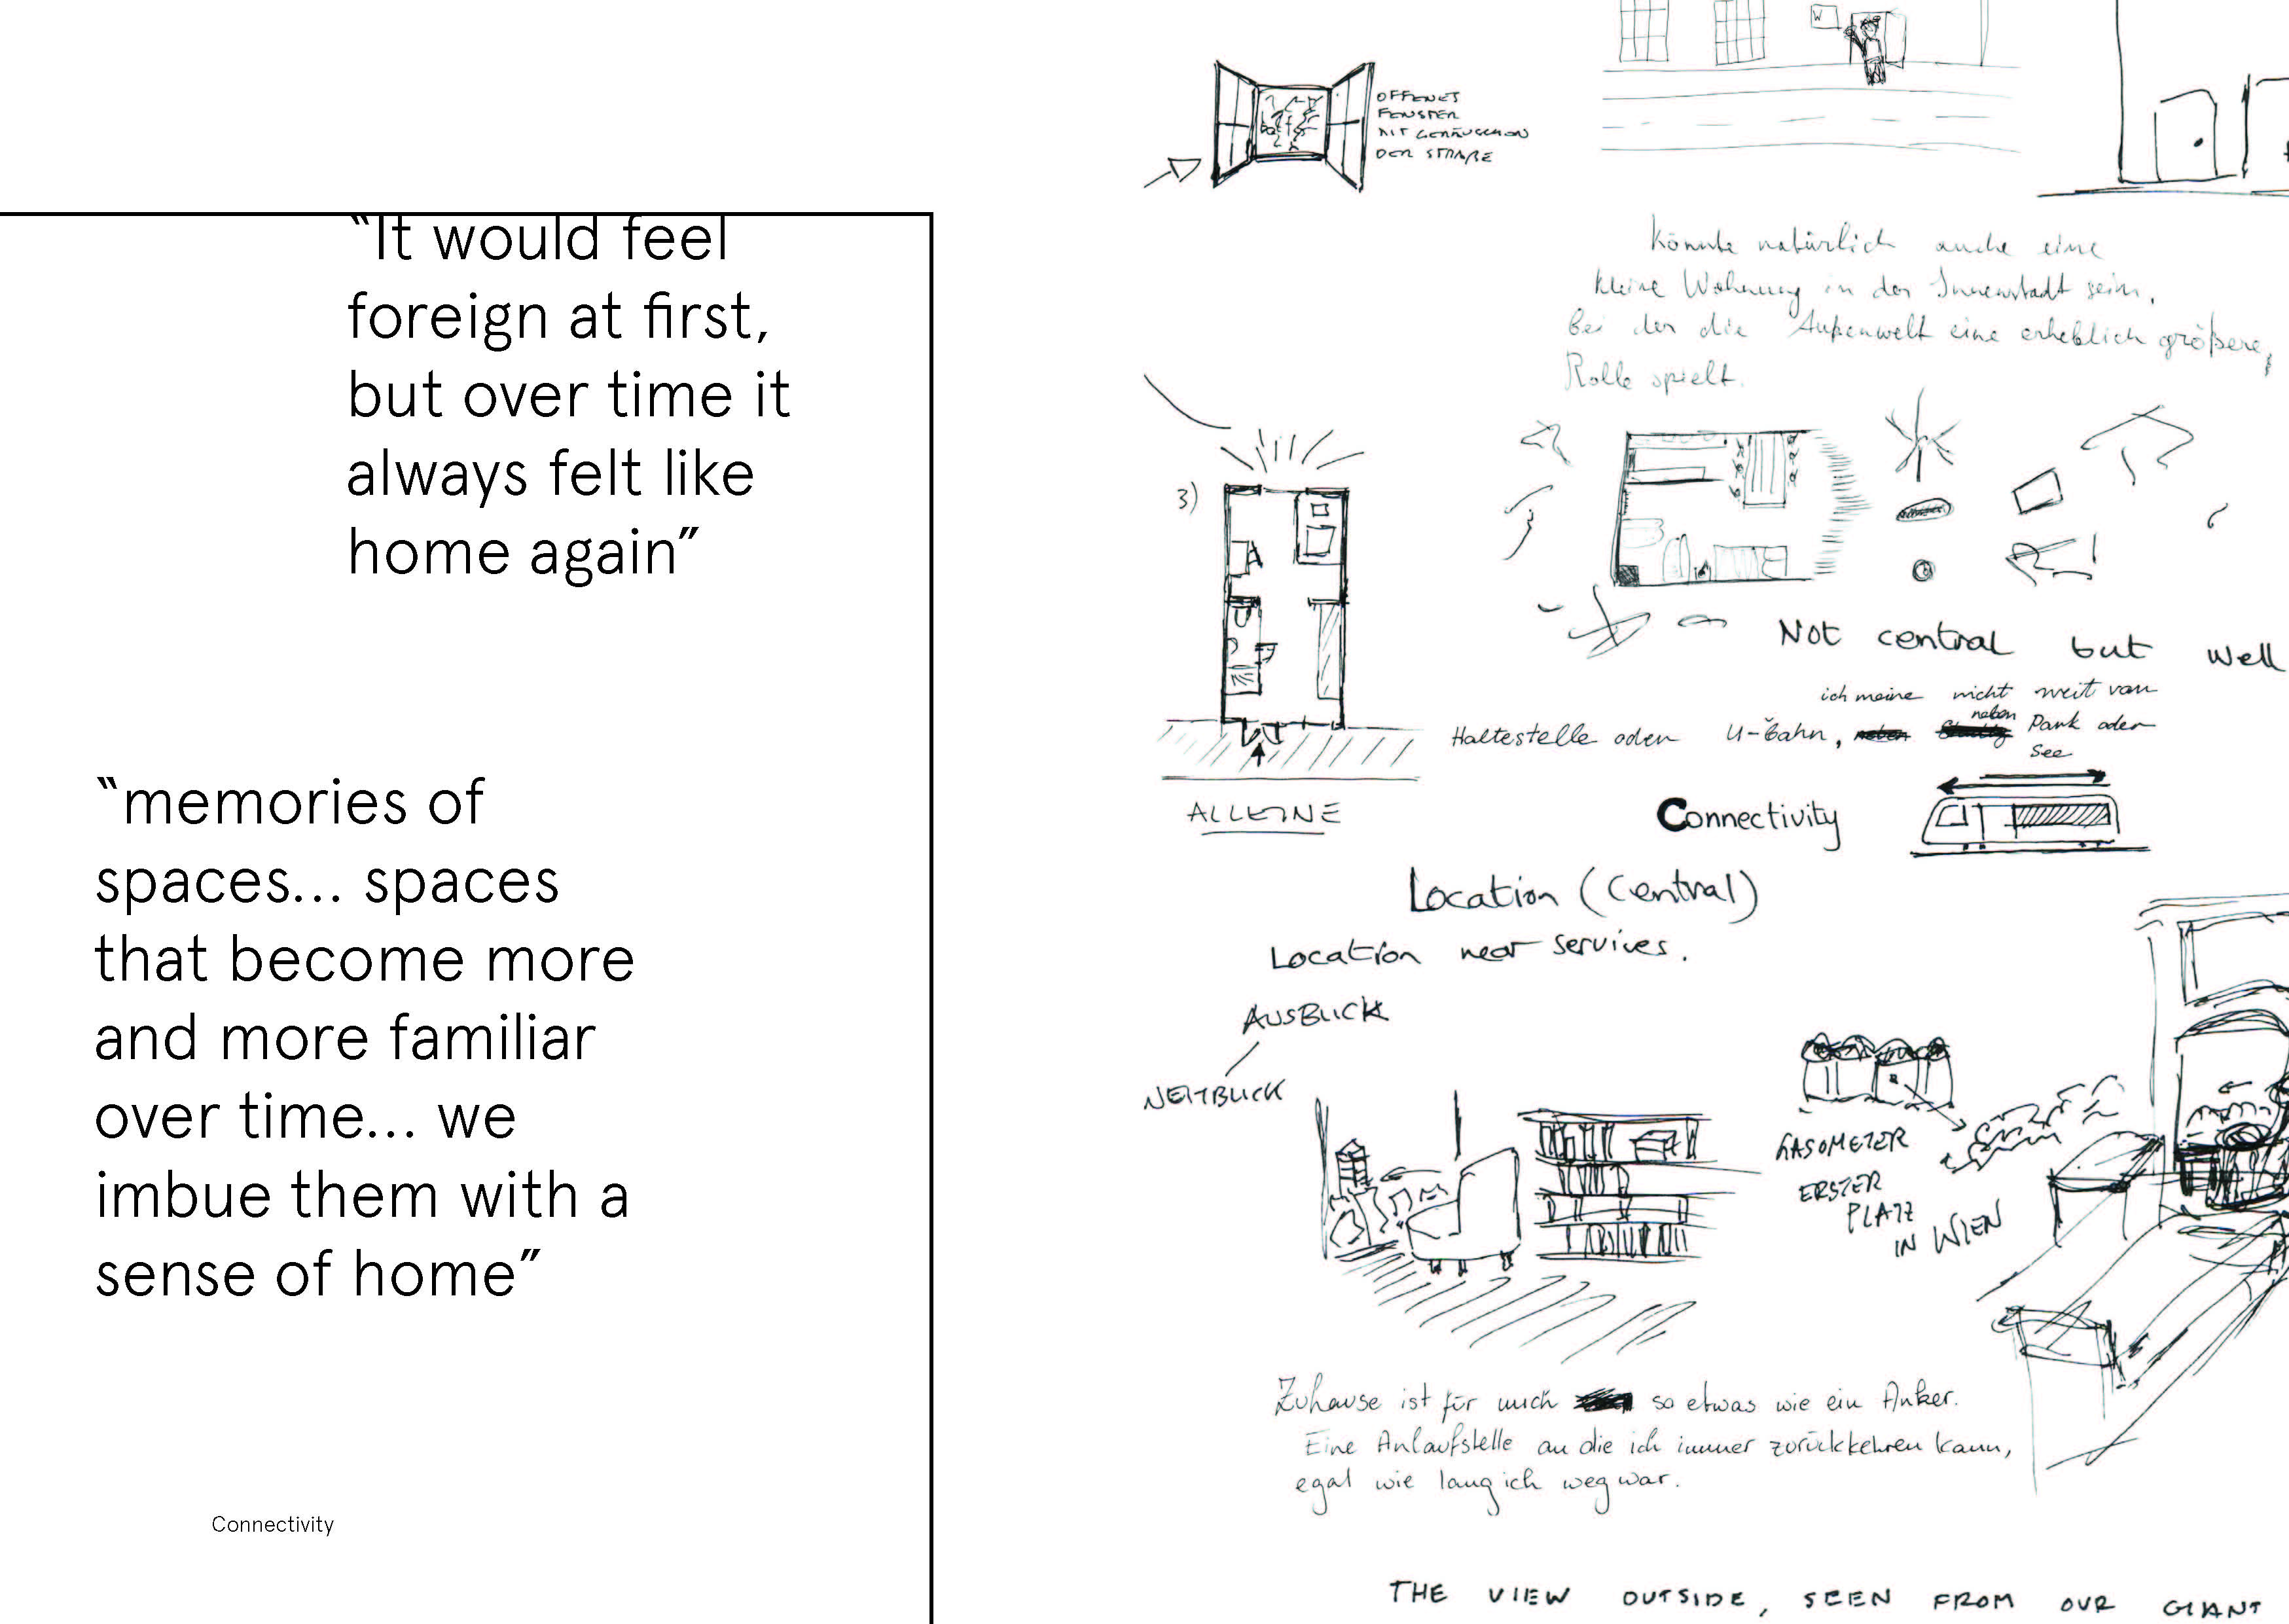 “It would feel
foreign at first,
but over time it
always felt like
home again”
“memories of
spaces... spaces
that become more
and more familiar
over time... we
imbue them with a
sense of home”
Connectivity
OFFENES
FENSTER
MIT GERÄUSCHEN
DER STRAßE
W
könnte natürlich auch eine
kleine Wohnung in der Innenstadt sein,
bei der die Außenwelt eine erheblich größere
Rolle spielt.
3)
ALLEINE
Not central but well
ich meine nicht weit von
Haltestelle oder U-Bahn, neben Park oder
See
Connectivity
Location (Central)
Location near services.
AUSBLICK
WEITBLICK
GASOMETER
ERSTER
PLATZ
IN WIEN
Zuhause ist für mich so etwas wie ein Anker.
Eine Anlaufstelle an die ich immer zurückkehren kann,
egal wie lang ich weg war.
THE VIEW OUTSIDE, SEEN FROM OUR GIANT